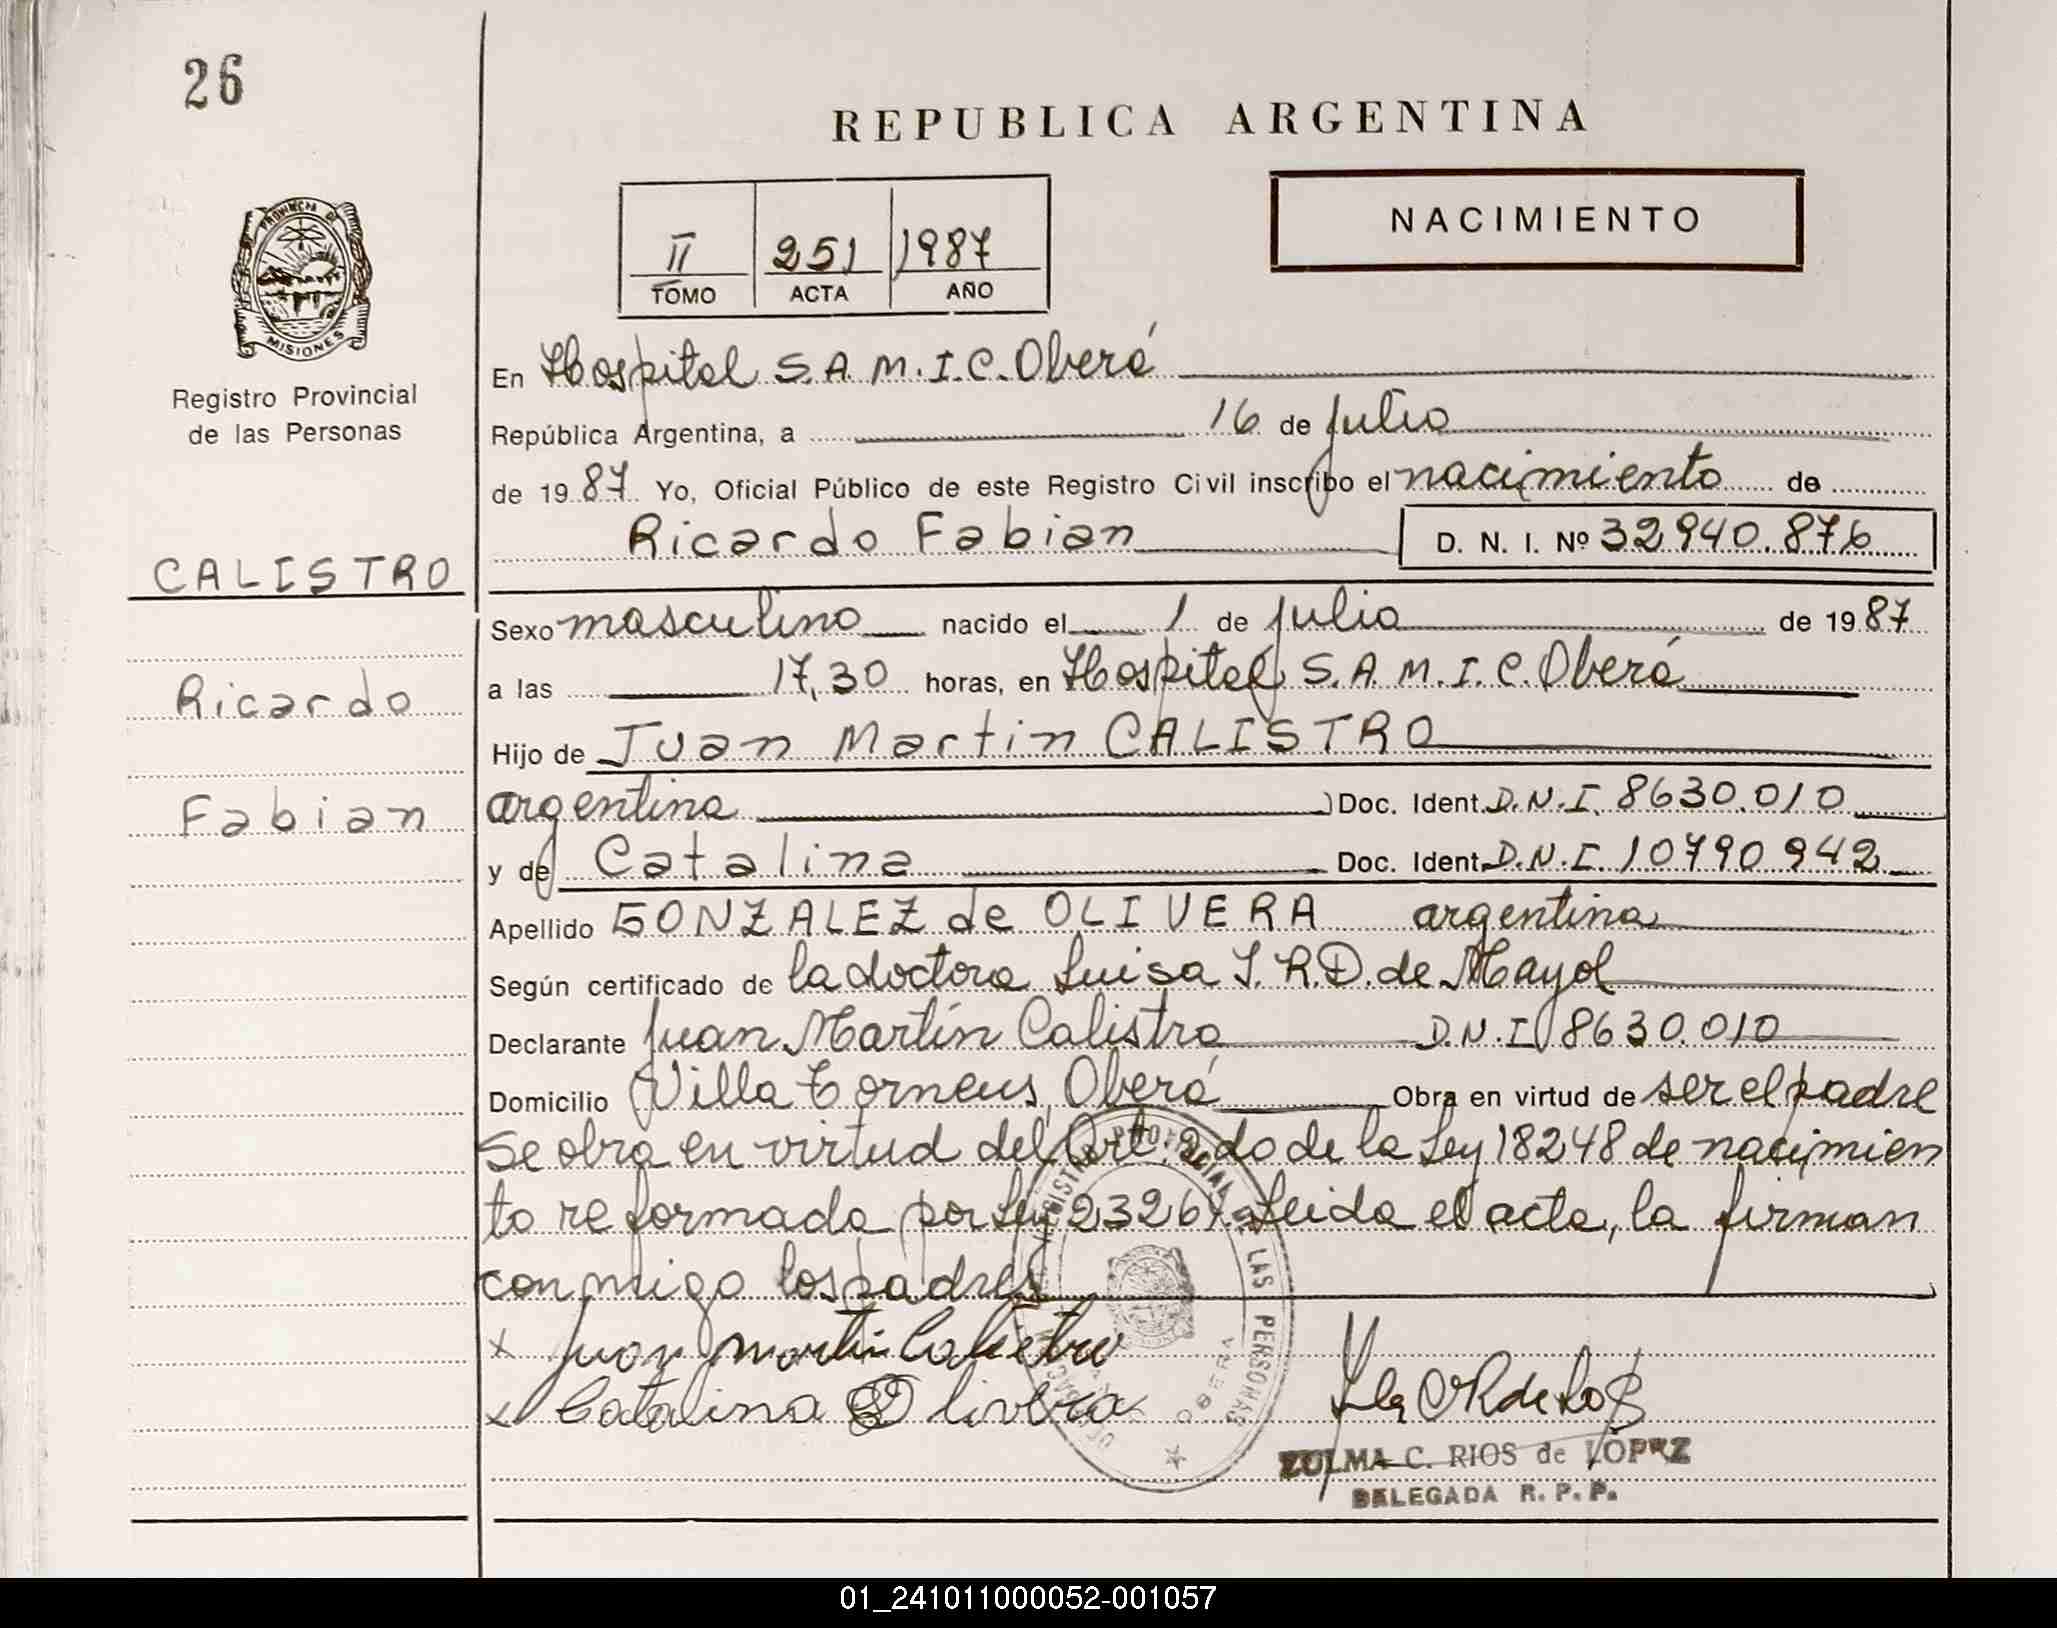 26
REPUBLICA ARGENTINA
NACIMIENTO
II 251 1987
TOMO ACTA AÑO
PROVINCIA DE
MISIONES
Registro Provincial
de las Personas
En Hospital S.A.M.I.C. Oberá
República Argentina, a 16 de julio
de 19 87 Yo, Oficial Público de este Registro Civil inscribo el nacimiento de
Ricardo Fabian D. N. I. Nº 32940.876
CALISTRO
Ricardo
Fabian
Sexo masculino nacido el 1 de julio de 19 87
a las 17,30 horas, en Hospital S.A.M.I.C. Oberá
Hijo de Juan Martin CALISTRO
argentina Doc. Ident. D.N.I. 8630.010
y de Catalina Doc. Ident. D.N.I. 10790942
Apellido GONZALEZ de OLIVERA argentina
Según certificado de la doctora Luisa S.R.D. de Mayol
Declarante Juan Martín Calistro D.N.I 8630.010
Domicilio Villa Torneus, Oberá Obra en virtud de ser el padre
Se obra en virtud del Art. 2do de la Ley 18248 de nacimien
to reformada por Ley 23264. Leida el acta, la firman
conmigo los padres
x Juan Martin Calistro
x Catalina Olivera
LAS PERSONAS
OBERA
ZULMA C. RIOS de LOPEZ
DELEGADA R. P. P.
01_241011000052-001057